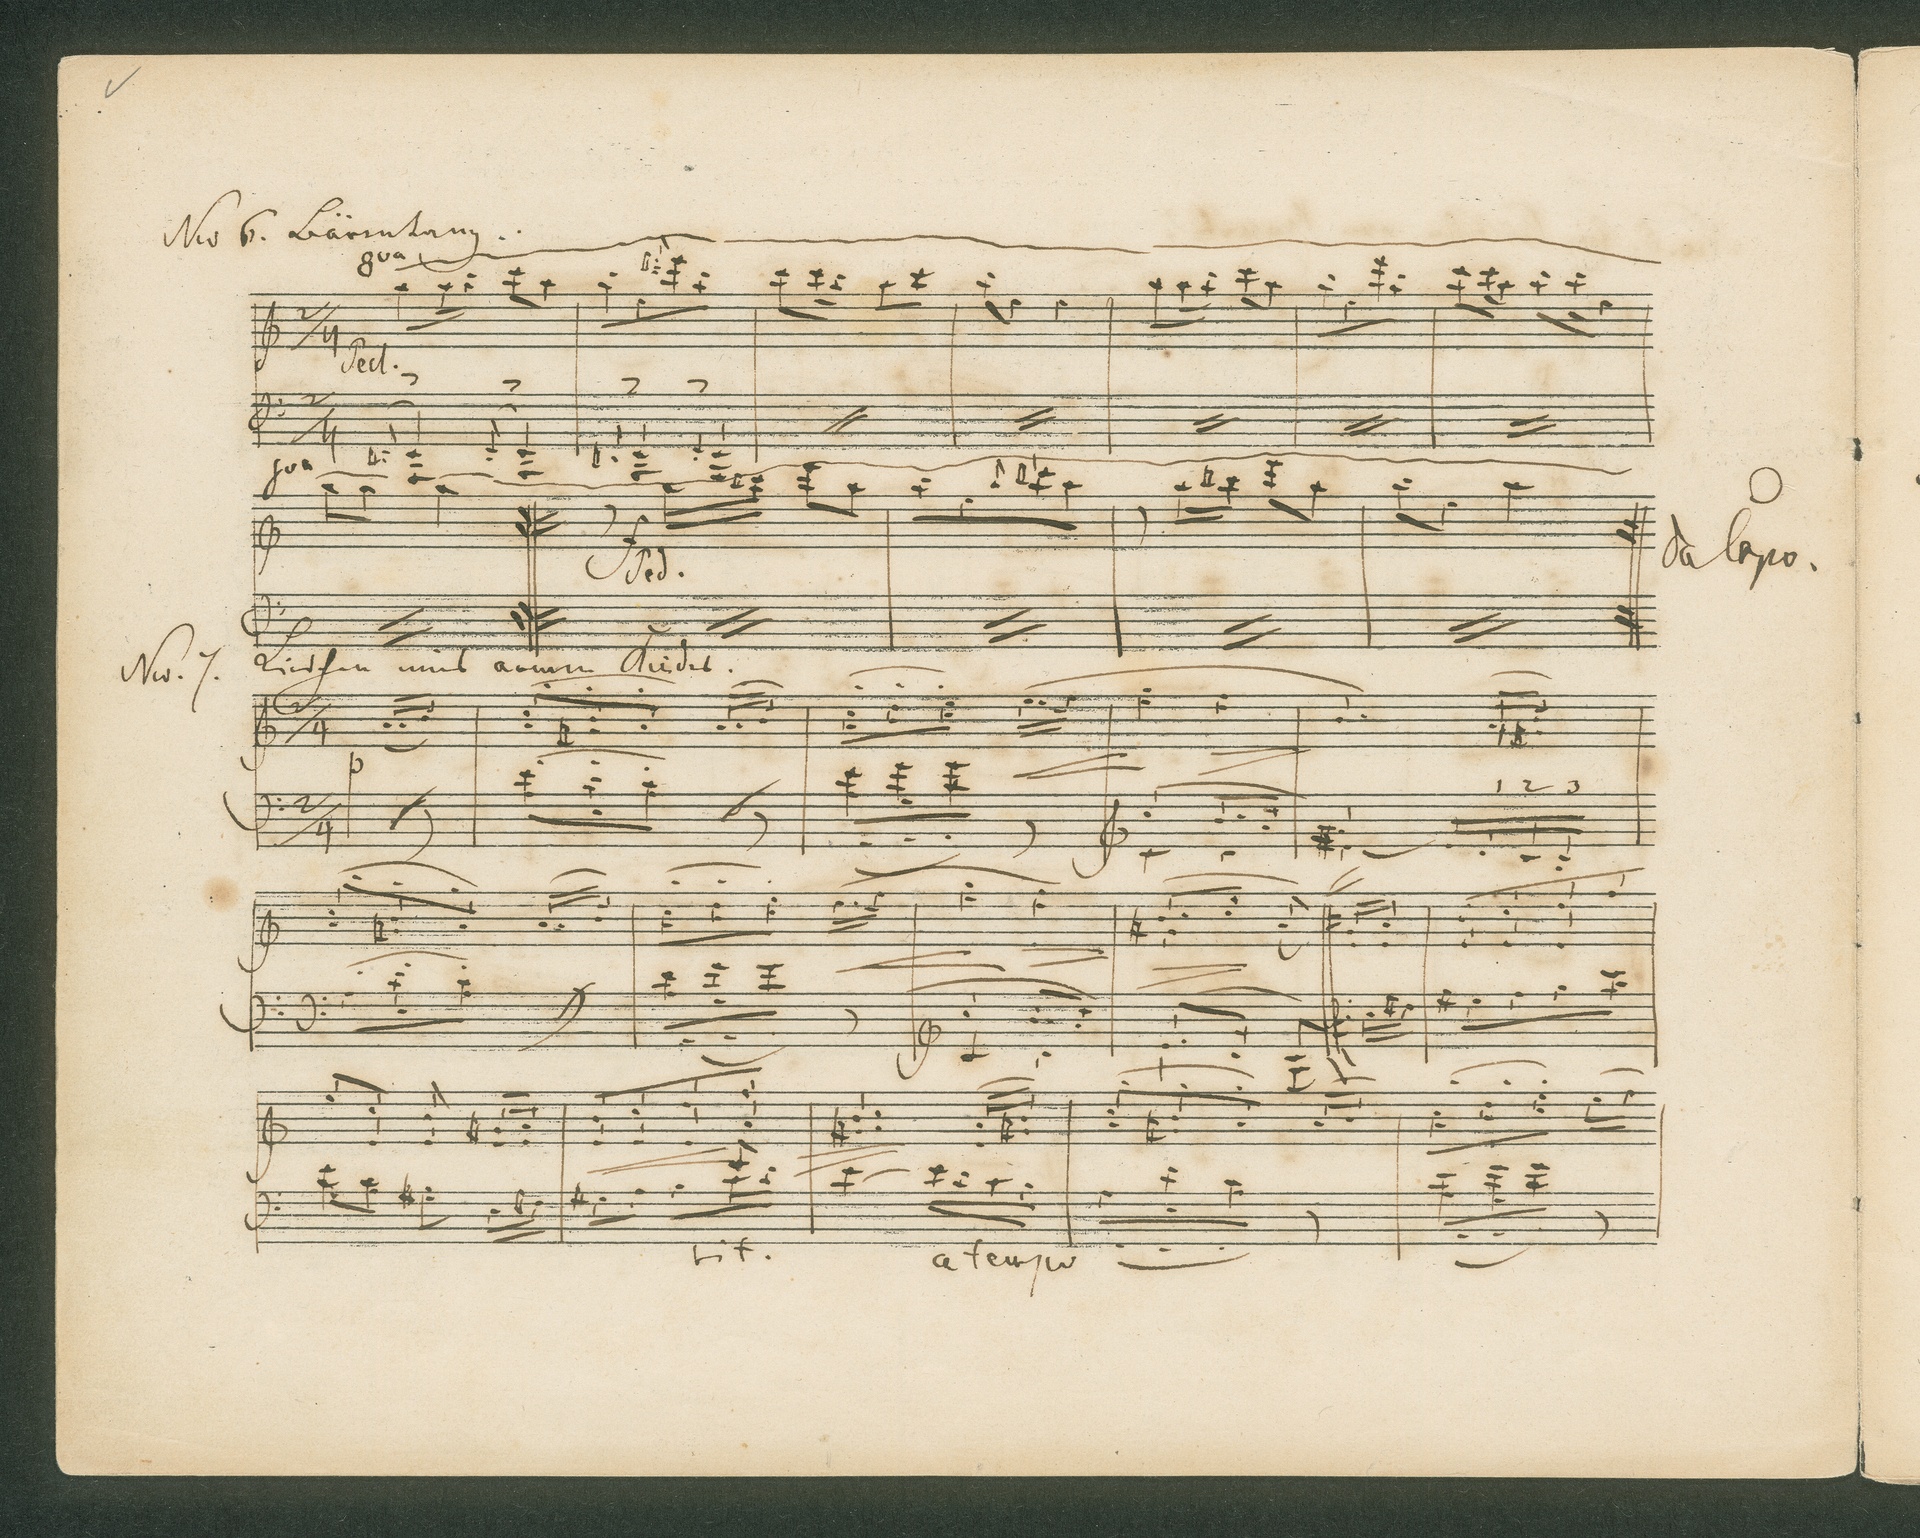 No 6. Bärentanz.
8va
2/4
Ped.
2/4
8va
f
Ped.
da Capo.
No. 7. Liedchen eines armen Kindes.
2/4
p
2/4
1 2 3
rit. a tempo